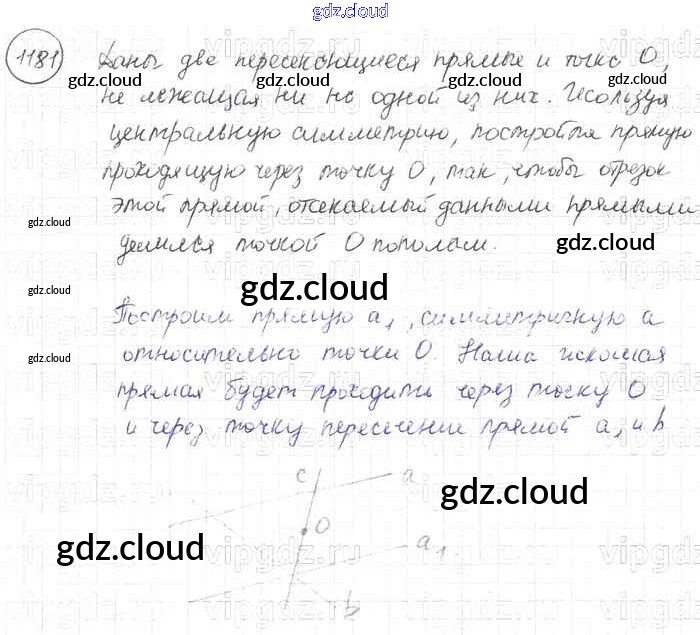 gdz.cloud
1181 Даны две пересекающиеся прямые и точка О,
gdz.cloud gdz.cloud gdz.cloud
не лежащая ни на одной из них. Используя
центральную симметрию, постройте прямую
проходящую через точку О, так, чтобы отрезок
этой прямой, отсекаемый данными прямыми
gdz.cloud
делился точкой О пополам.
gdz.cloud
gdz.cloud
gdz.cloud
Построим прямую а1, симметричную а
относительно точки О. Наша искомая
gdz.cloud
прямая будет проходить через точку О
и через точку пересечения прямой а1 и b
c
a
gdz.cloud
O
gdz.cloud
a1
b